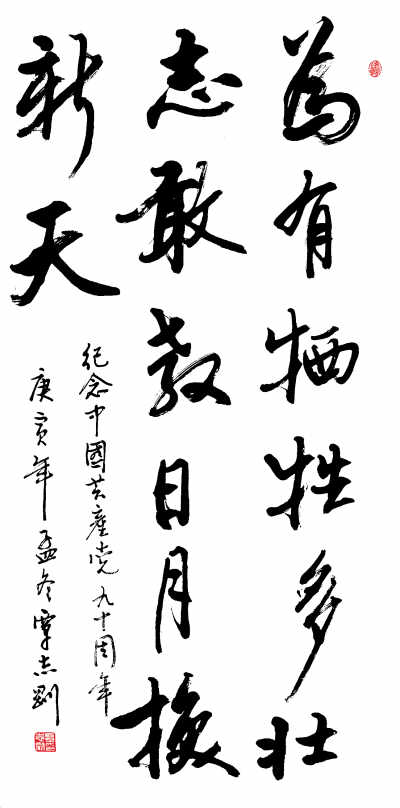 為有牺牲多壮
志敢教日月换
新天
纪念中國共產党九十周年
庚寅年孟冬覃志剛